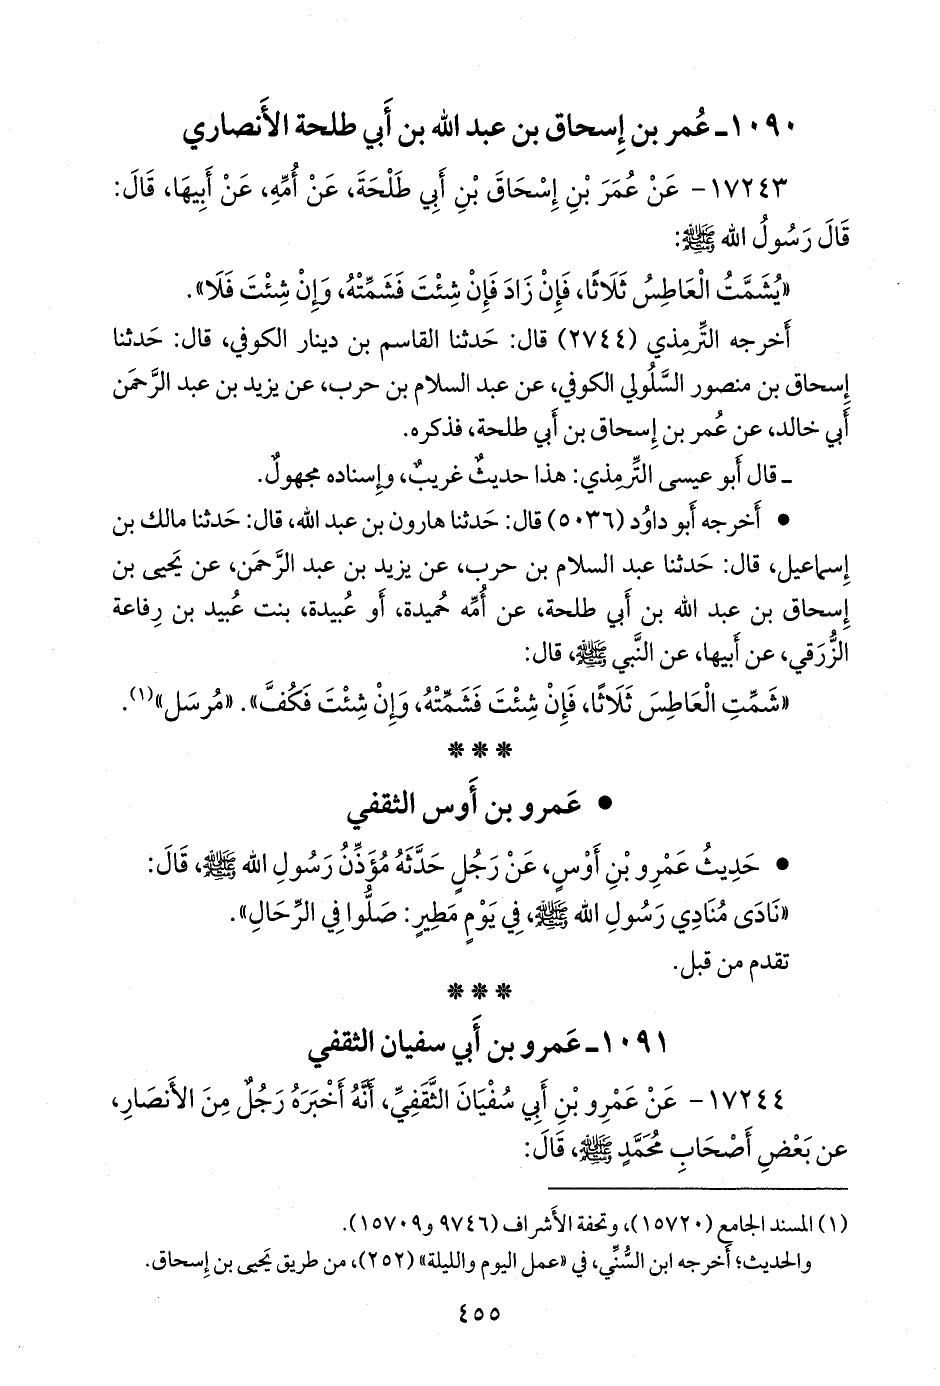 ١٠٩٠ـ عُمر بن إِسحاق بن عبد الله بن أَبي طلحة الأَنصاري
١٧٢٤٣- عَنْ عُمَرَ بْنِ إِسْحَاقَ بْنِ أَبِي طَلْحَةَ، عَنْ أُمِّهِ، عَنْ أَبِيهَا، قَالَ:
قَالَ رَسُولُ الله ﷺ:
«يُشَمَّتُ الْعَاطِسُ ثَلَاثًا، فَإِنْ زَادَ فَإِنْ شِئْتَ فَشَمِّتْهُ، وَإِنْ شِئْتَ فَلَا».
أَخرجه التِّرمِذي (٢٧٤٤) قال: حَدثنا القاسم بن دينار الكوفي، قال: حَدثنا
إِسحاق بن منصور السَّلُولي الكوفي، عن عبد السلام بن حرب، عن يزيد بن عبد الرَّحمَن
أَبي خالد، عن عُمر بن إِسحاق بن أَبي طلحة، فذكره.
ـ قال أَبو عيسى التِّرمِذي: هذا حديثٌ غريبٌ، وإِسناده مجهولٌ.
• أَخرجه أَبو داوُد (٥٠٣٦) قال: حَدثنا هارون بن عبد الله، قال: حَدثنا مالك بن
إِسماعيل، قال: حَدثنا عبد السلام بن حرب، عن يزيد بن عبد الرَّحمَن، عن يَحيى بن
إِسحاق بن عبد الله بن أَبي طلحة، عن أُمِّه حُميدة، أَو عُبيدة، بنت عُبيد بن رِفاعة
الزُّرَقي، عن أَبيها، عن النَّبي ﷺ، قال:
«شَمِّتِ الْعَاطِسَ ثَلَاثًا، فَإِنْ شِئْتَ فَشَمِّتْهُ، وَإِنْ شِئْتَ فَكُفَّ». «مُرسَل»(١).
* * *
• عَمرو بن أَوس الثقفي
• حَدِيثُ عَمْرِو بْنِ أَوْسٍ، عَنْ رَجُلٍ حَدَّثَهُ مُؤَذِّنُ رَسُولِ الله ﷺ، قَالَ:
«نَادَى مُنَادِي رَسُولِ الله ﷺ، فِي يَوْمٍ مَطِيرٍ: صَلُّوا فِي الرِّحَالِ».
تقدم من قبل.
* * *
١٠٩١ـ عَمرو بن أَبي سفيان الثقفي
١٧٢٤٤- عَنْ عَمْرِو بْنِ أَبِي سُفْيَانَ الثَّقَفِيِّ، أَنَّهُ أَخْبَرَهُ رَجُلٌ مِنَ الأَنصَارِ،
عن بَعْضِ أَصْحَابِ مُحَمَّدٍ ﷺ، قَالَ:
(١) المسند الجامع (١٥٧٢٠)، وتحفة الأَشراف (٩٧٤٦ و١٥٧٠٩).
والحديث؛ أَخرجه ابن السُّنِّي، في «عمل اليوم والليلة» (٢٥٢)، من طريق يَحيى بن إِسحاق.
٤٥٥